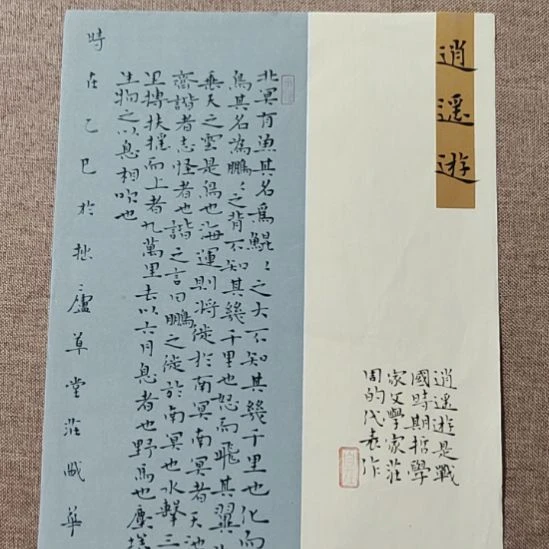 逍遥遊
逍遥遊是戰
國時期哲學
家文學家莊
周的代表作
北冥有漁其名爲鯤〻之大不知其幾千里也化而
鳥其名為鵬〻之背不知其幾千里也怒而飛其翼
垂天之雲是鳥也海運則將徙於南冥南冥者天池
齊諧者志怪者也諧之言曰鵬之徙於南冥也水擊三
里摶扶摇而上者九萬里去以六月息者也野馬也塵埃
生物之以息相吹也
時在乙巳於拙〻廬草堂莊華